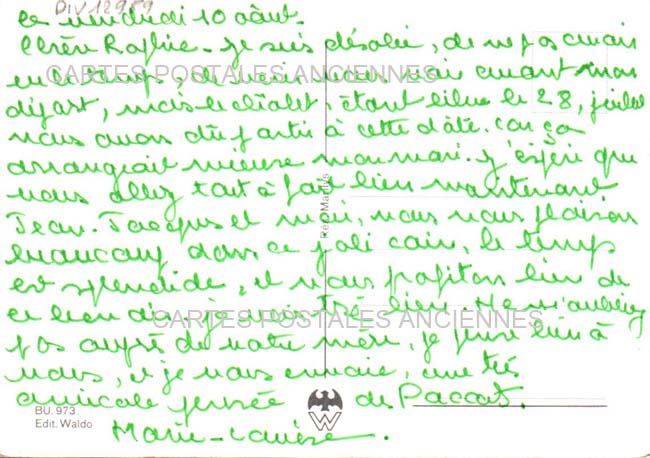 DIV 12959
ce vendredi 10 août.
Chère Raflie - je suis désolée, de ne pas avoir
eu le temps, de venir vous voir avant mon
départ, mais le châlet, étant libre le 28, juillet
nous avons dû partir à cette dâte. car ça
arrangeait mieux mon mari. J'espère que
vous allez tout à fait bien maintenant
Jean-Jacques et moi, nous nous plaisons
beaucoup dans ce joli coin, le temps
est splendide, et nous profitons bien de
ce bon air, je vais très bien. Ne m'oubliez
pas auprès de votre mère, je pense bien à
vous, et je vous envoie, une très
amicale pensée de Paccot.
Marie-Louise.
CARTES POSTALES ANCIENNES
CARTES POSTALES ANCIENNES
BU. 973
Edit. Waldo
W